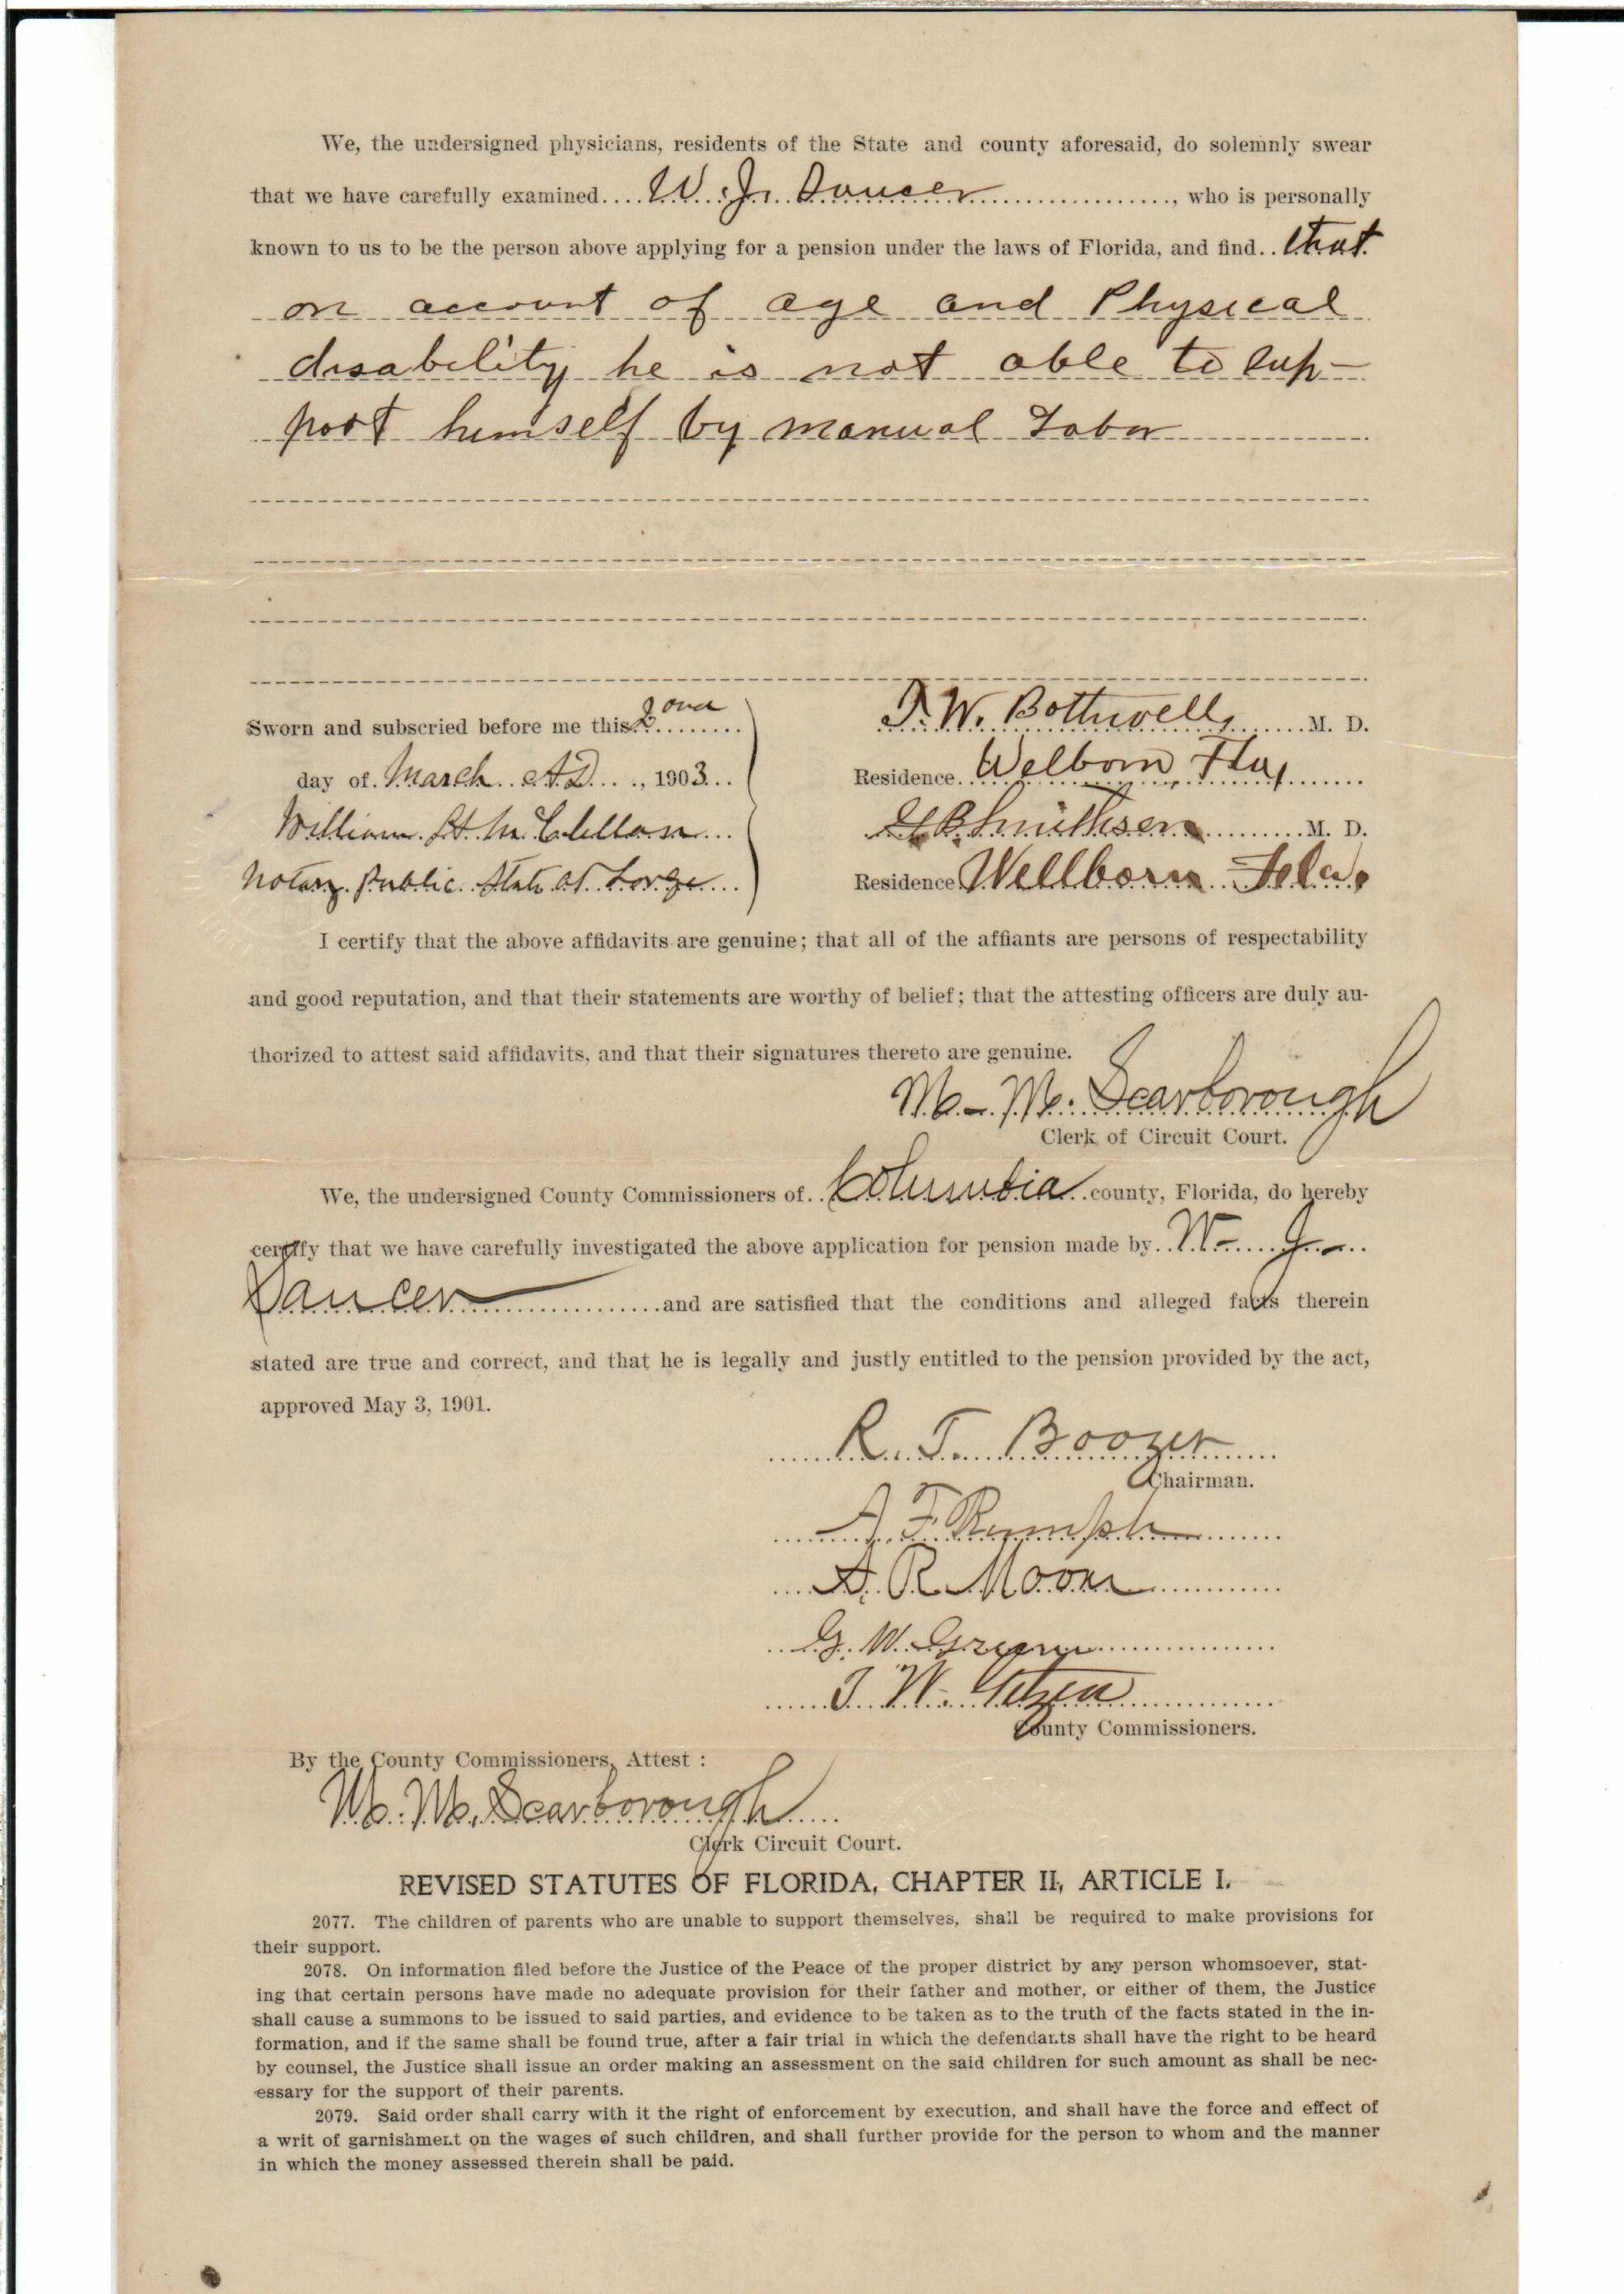 We, the undersigned physicians, residents of the State and county aforesaid, do solemnly swear
that we have carefully examined.... W. J. Dancer ...................., who is personally
known to us to be the person above applying for a pension under the laws of Florida, and find.. that
on account of age and Physical
disability he is not able to sup-
port himself by manual Labor
Sworn and subscried before me this 2ond
day of March A D , 1903
William H. McClellan
Notary Public State at Large
T. W. Bothwell M. D.
Residence Welborn Fla
Smithson M. D.
Residence Wellborn Fla.
I certify that the above affidavits are genuine; that all of the affiants are persons of respectability
and good reputation, and that their statements are worthy of belief; that the attesting officers are duly au-
thorized to attest said affidavits, and that their signatures thereto are genuine.
M. M. Scarborough
Clerk of Circuit Court.
We, the undersigned County Commissioners of.. Columbia county, Florida, do hereby
certify that we have carefully investigated the above application for pension made by.. W. J.
Dancer and are satisfied that the conditions and alleged facts therein
stated are true and correct, and that he is legally and justly entitled to the pension provided by the act,
approved May 3, 1901.
R. T. Boozer
Chairman.
A. F. Rumph
A. R. Moore
G. W. Green
T. W. Getzen
County Commissioners.
By the County Commissioners, Attest :
M. M. Scarborough
Clerk Circuit Court.
REVISED STATUTES OF FLORIDA, CHAPTER II, ARTICLE I.
2077. The children of parents who are unable to support themselves, shall be required to make provisions for
their support.
2078. On information filed before the Justice of the Peace of the proper district by any person whomsoever, stat-
ing that certain persons have made no adequate provision for their father and mother, or either of them, the Justice
shall cause a summons to be issued to said parties, and evidence to be taken as to the truth of the facts stated in the in-
formation, and if the same shall be found true, after a fair trial in which the defendants shall have the right to be heard
by counsel, the Justice shall issue an order making an assessment on the said children for such amount as shall be nec-
essary for the support of their parents.
2079. Said order shall carry with it the right of enforcement by execution, and shall have the force and effect of
a writ of garnishment on the wages of such children, and shall further provide for the person to whom and the manner
in which the money assessed therein shall be paid.